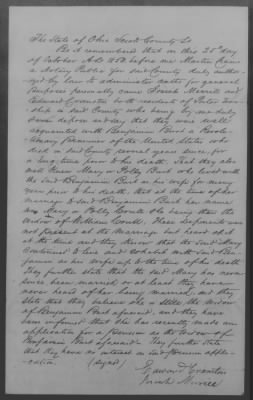 The State of Ohio Scioto County Ss
Be it remembered that on this 25th day
of October A.D. 1850 before me Martin
a Notary Public for said County duly author-
ized by law to administer oaths for general
purposes personally came Josiah Merrill and
Edward Cranston both resident of Porter Town-
ship in said County who being by me duly
sworn depose and say that they were well
acquainted with Benjamin Burt a Revolu-
tionary Pensioner of the United States who
died in said County several years since, for
a long time prior to his death. That they also
well knew Mary or Polly Burt who lived with
the said Benjamin Burt as his wife for many
years prior to his death, that at the time of her
marriage to said Benjamin Burt her name
was Mary or Polly she being then the
widow of William. These deponents was
not present at the marriage but heard of it
at the time and they know that the said Mary
continued to live and cohabit with said Ben-
jamin as his wife up to the time of his death
They further state that the said Mary has never
since been married or at least they have
never heard of her being married, and they
state that they believe she is still the widow
of Benjamin Burt aforesaid, and they have
been informed that she has recently made an
application for a Pension as the widow of
Benjamin Burt aforesaid. They further state
that they have no interest in said Pension appli-
cation (signed)
Edward Cranston
Josiah Merrill